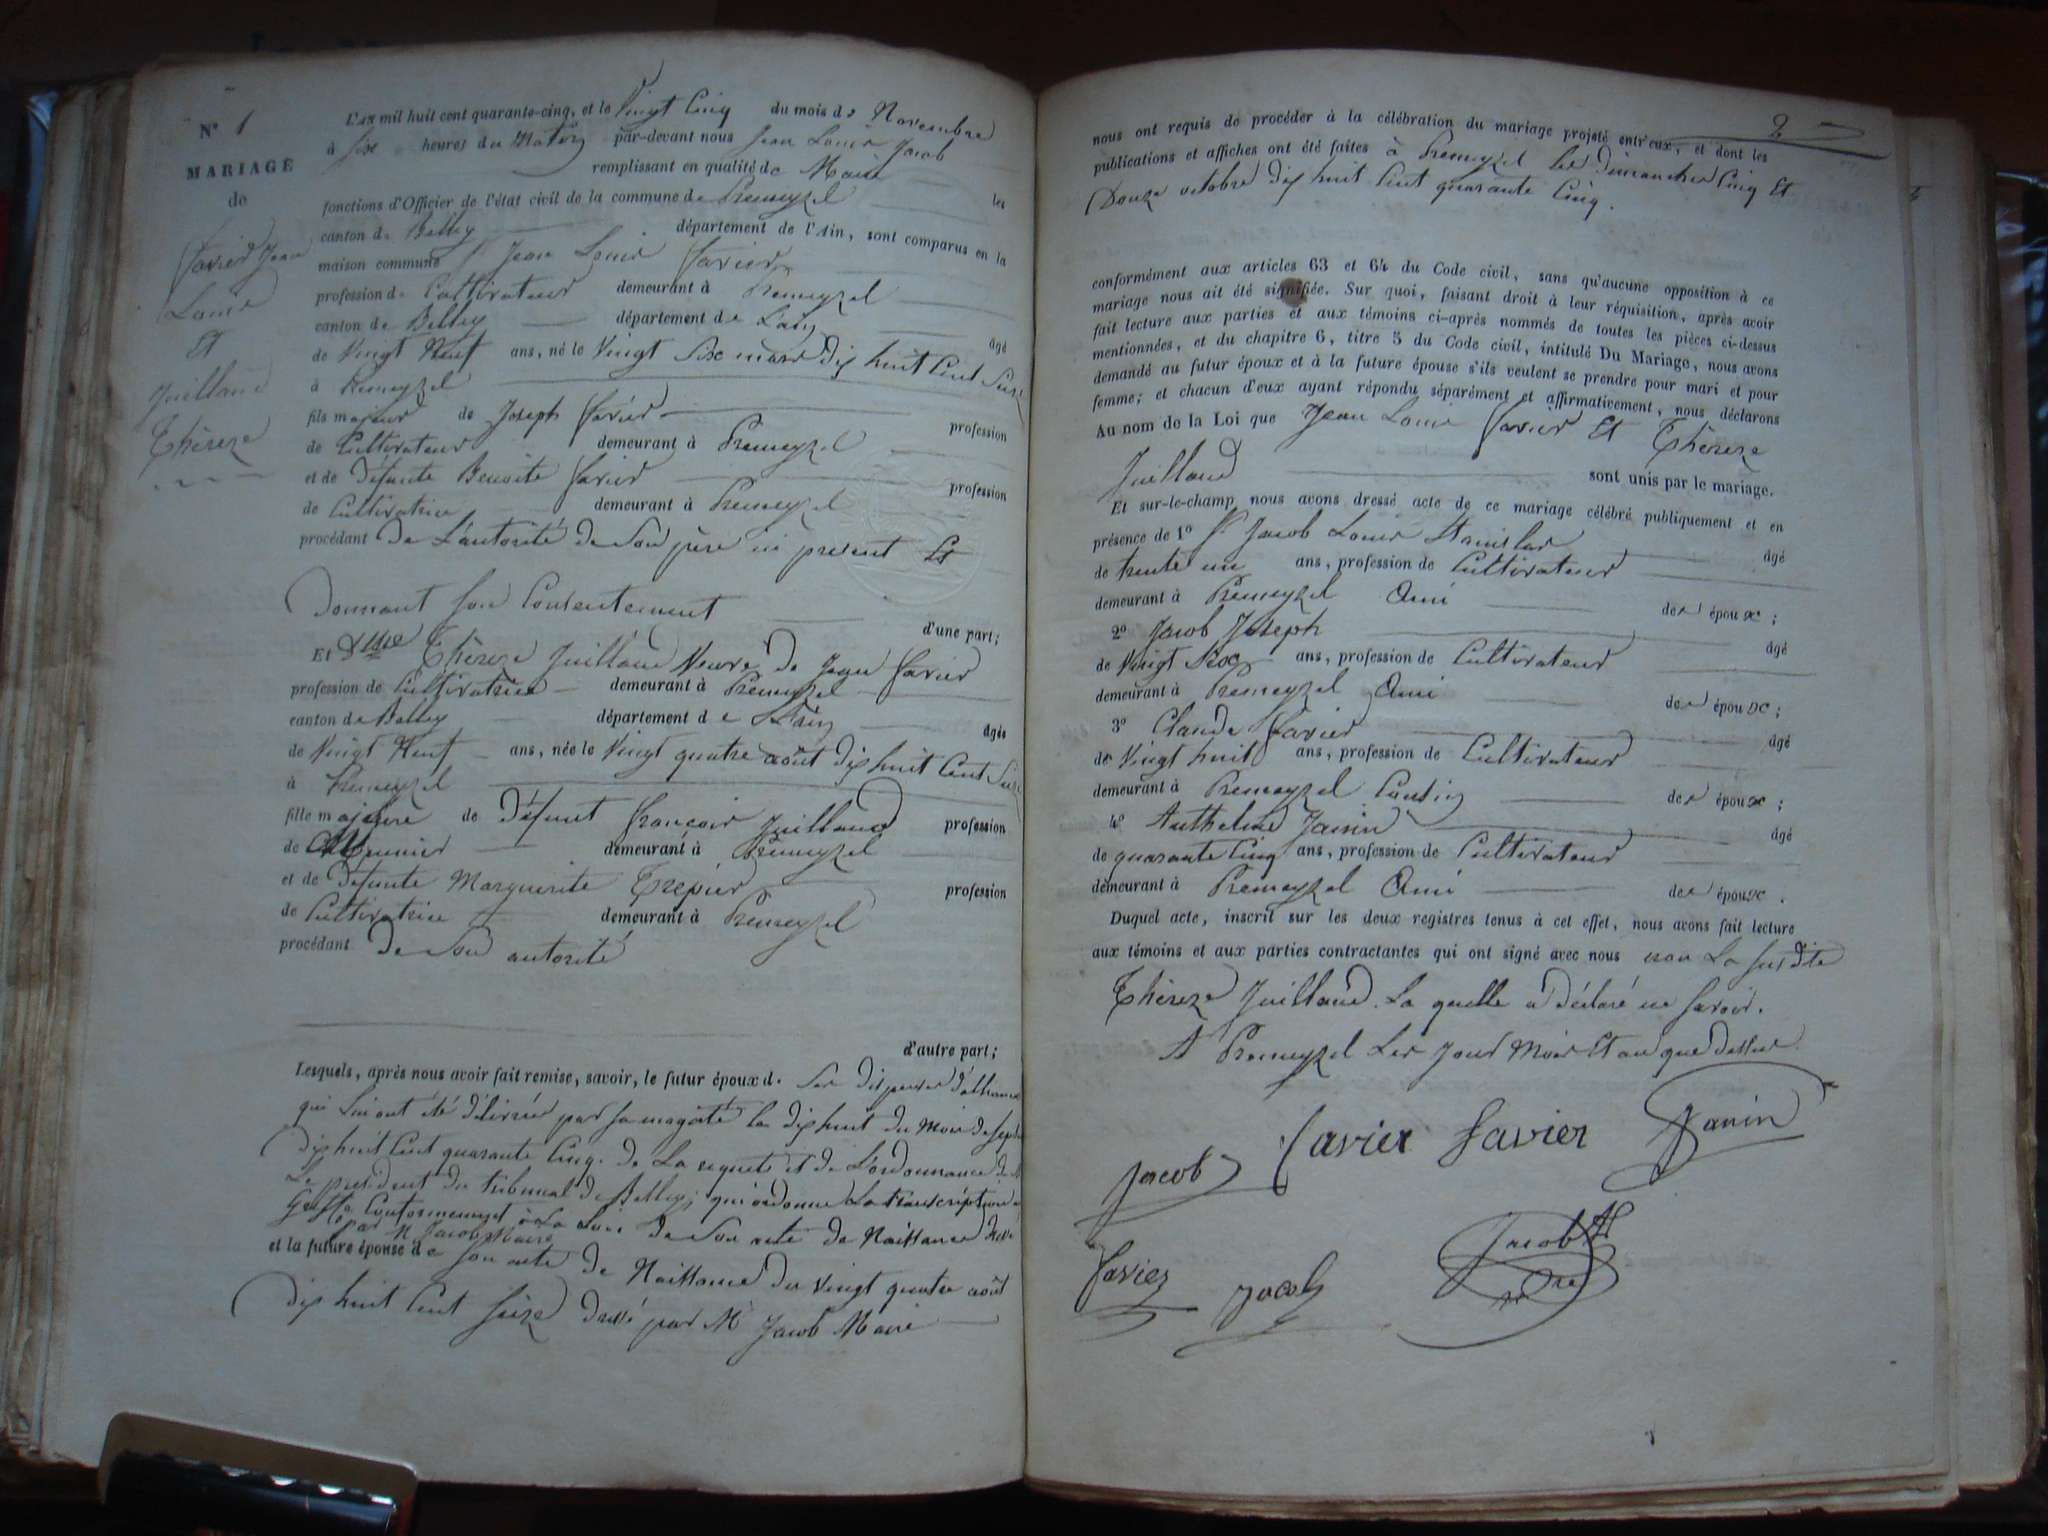 N° 1
MARIAGE
de
Favier Jean
Louis
Et
Juilland
Thèreze
L'an mil huit cent quarante-cinq, et le Vingt Cinq du mois de Novembre
à Six heures du Matin par-devant nous Jean Louis Jacob
remplissant en qualité de Maire les
fonctions d'Officier de l'état civil de la commune de Premeyzel
canton de Belley département de l'Ain, sont comparus en la
maison commune Sr Jean Louis Favier
profession de Cultivateur demeurant à Premeyzel
canton de Belley département de L'ain âgé
de Vingt Neuf ans, né le Vingt Six mars dix huit Cent Seize
à Premeyzel
fils majeur de Joseph Favier profession
de Cultivateur demeurant à Premeyzel
et de Défunte Benoite Favier profession
de Cultivatrice demeurant à Premeyzel
procédant De L'autorité de Son père ici present Et
Donnant Son Consentement
d'une part;
Et Dlle Thèreze Juilland Veuve de Jean Favier
profession de Cultivatrice demeurant à Premeyzel
canton de Belley département de L'ain âgée
de Vingt Neuf ans, née le Vingt quatre août dix huit Cent Seize
à Premeyzel
fille majeure de Défunt François Juilland profession
de Meunier demeurant à Premeyzel
et de Défunte Marguerite Trepier profession
de Cultivatrice demeurant à Premeyzel
procédant de Son autorité
d'autre part;
Lesquels, après nous avoir fait remise, savoir, le futur époux de Ses dispenses d'alliance
qui Lui ont été délivrée par Sa magesté le dix huit du Mois de Septe
Dix huit Cent quarante Cinq. de La requete et de L'ordonnance de
Le president du tribunal de Belley; qui ordonne La transcription
Conformement à La Loi de Son acte de Naissance
par M Jacob Maire
et la future épouse de Son acte de Naissance du Vingt quatre août
dix huit Cent Seize Dressé par Mr Jacob Maire
2
nous ont requis de procéder à la célébration du mariage projeté entr'eux, et dont les
publications et affiches ont été faites à Premeyzel les Dimanches Cinq Et
Douze octobre dix huit Cent quarante Cinq.
conformément aux articles 63 et 64 du Code civil, sans qu'aucune opposition à ce
mariage nous ait été signifiée. Sur quoi, faisant droit à leur réquisition, après avoir
fait lecture aux parties et aux témoins ci-après nommés de toutes les pièces ci-dessus
mentionnées, et du chapitre 6, titre 5 du Code civil, intitulé Du Mariage, nous avons
demandé au futur époux et à la future épouse s'ils veulent se prendre pour mari et pour
femme; et chacun d'eux ayant répondu séparément et affirmativement, nous déclarons
Au nom de la Loi que Jean Louis Favier Et Thèreze
Juilland sont unis par le mariage.
Et sur-le-champ nous avons dressé acte de ce mariage célébré publiquement et en
présence de 1° Sr Jacob Louis Stanislas âgé
de trente un ans, profession de Cultivateur
demeurant à Premeyzel Ami des époux;
2° Jacob Joseph âgé
de Vingt Six ans, profession de Cultivateur
demeurant à Premeyzel Ami des époux;
3° Claude Favier âgé
de Vingt huit ans, profession de Cultivateur
demeurant à Premeyzel Cousin des époux;
4° Anthelme Janin âgé
de quarante Cinq ans, profession de Cultivateur
demeurant à Premeyzel Ami des époux.
Duquel acte, inscrit sur les deux registres tenus à cet effet, nous avons fait lecture
aux témoins et aux parties contractantes qui ont signé avec nous non La Susdite
Thèreze Juilland. La quelle a déclaré ne Savoir.
A Premeyzel Les Jour Mois Et an que dessus.
Jacob Favier Favier Janin
Favier Jacob Jacob